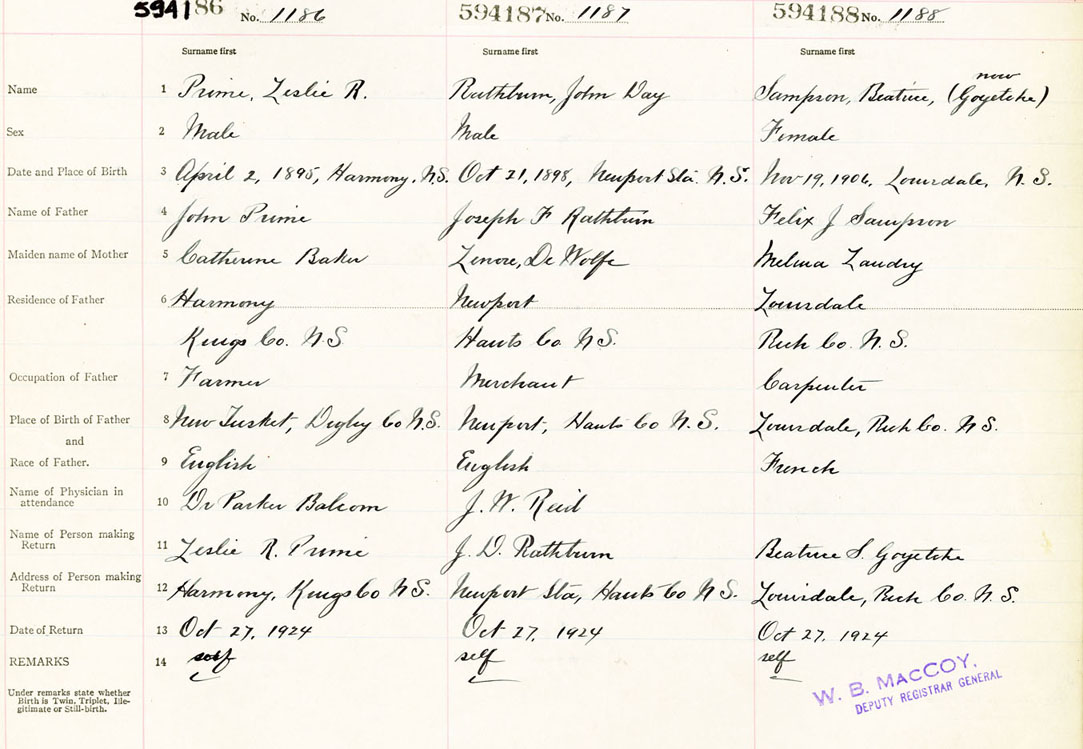 594186 No. 1186 594187 No. 1187 594188 No. 1188
Surname first Surname first Surname first
now
Name 1 Prime, Leslie R. Rathburn, John Day Sampson, Beatrice, (Goyetche)
Sex 2 Male Male Female
Date and Place of Birth 3 April 2, 1895, Harmony, N.S. Oct 21, 1898, Newport Sta. N.S. Nov 19, 1906, Louisdale, N.S.
Name of Father 4 John Prime Joseph F Rathburn Felix J Sampson
Maiden name of Mother 5 Catherine Baker Lenore, De Wolfe Melina Landry
Residence of Father 6 Harmony Newport Louisdale
Kings Co. N.S. Hants Co N.S. Rich Co. N.S.
Occupation of Father 7 Farmer Merchant Carpenter
Place of Birth of Father 8 New Tusket, Digby Co N.S. Newport, Hants Co N.S. Louisdale, Rich Co. N.S.
and
Race of Father. 9 English English French
Name of Physician in
attendance 10 Dr Parker Balcom J. W. Reid
Name of Person making
Return 11 Leslie R. Prime J. D. Rathburn Beatrice S. Goyetche
Address of Person making
Return 12 Harmony, Kings Co N.S. Newport Sta, Hants Co N.S. Louisdale, Rich Co. N.S.
Date of Return 13 Oct 27, 1924 Oct 27, 1924 Oct 27, 1924
REMARKS 14 self self self
Under remarks state whether
Birth is Twin, Triplet, Ille-
gitimate or Still-birth.
W. B. MACCOY,
DEPUTY REGISTRAR GENERAL